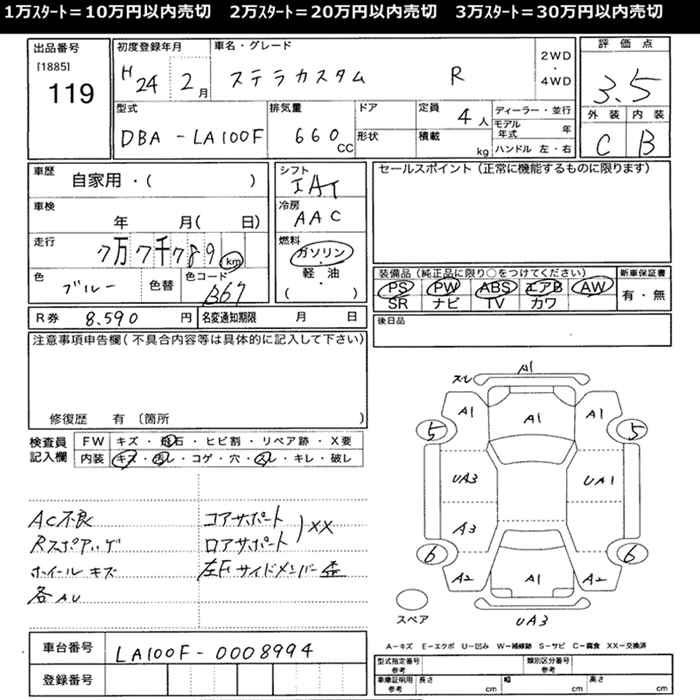 1万ｽﾀｰﾄ＝10万円以内売切　2万ｽﾀｰﾄ＝20万円以内売切　3万ｽﾀｰﾄ＝30万円以内売切
出品番号
[1885]
119
初度登録年月
H24 年 2月
車名・グレード
ステラカスタム R
2WD
・
4WD
評価点
3.5
外装 内装
C B
型式
DBA-LA100F
排気量
660 CC
ドア
形状
定員 4人
積載 kg
ディーラー・並行
モデル年式 年
ハンドル 左・右
車歴
自家用・( )
車検
年 月( 日)
走行
7万7千789 km
色
ブルー
色替
色コード
B67
シフト
IAT
冷房
AAC
燃料
ガソリン
・
軽・油
( )
セールスポイント(正常に機能するものに限ります)
装備品(純正品に限り○をつけてください)
PS PW ABS エアB AW
SR ナビ TV カワ
新車保証書
有・無
R券 8.590 円
名変通知期限 月 日
後日品
注意事項申告欄(不具合内容等は具体的に記入して下さい)
修復歴 有 〔箇所 〕
検査員
記入欄
FW キズ・飛石・ヒビ割・リペア跡・X要
内装 キズ・汚レ・コゲ・穴・スレ・キレ・破レ
AC不良
Rスポアゲ
ホイールキズ
各AU
コアサポート
ロアサポート
XX
左Fサイドメンバー歪
スレ A1
A1 A1 A1
5 5
UA3 UA1
A3
6 6
A2 A1 A2
スペア
UA3
車台番号
LA100F-0008994
登録番号
A－キズ E－エクボ U－凹み W－補修跡 S－サビ C－腐食 XX－交換済
型式指定番号
参考
類別区分番号
参考
車庫証明用
参考
長さ cm 幅 cm 高さ cm